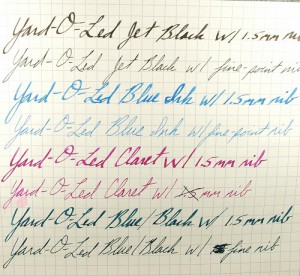 Yard-O-Led Jet Black w/ 1.5mm nib
Yard-O-Led Jet Black w/ fine-point nib
Yard-O-Led Blue Ink w/ 1.5mm nib
Yard-O-Led Blue Ink w/ fine-point nib
Yard-O-Led Claret w/ 1.5mm nib
Yard-O-Led Claret w/ 1.5 mm nib
Yard-O-Led Blue/Black w/ 1.5mm nib
Yard-O-Led Blue/Black w/ fine nib